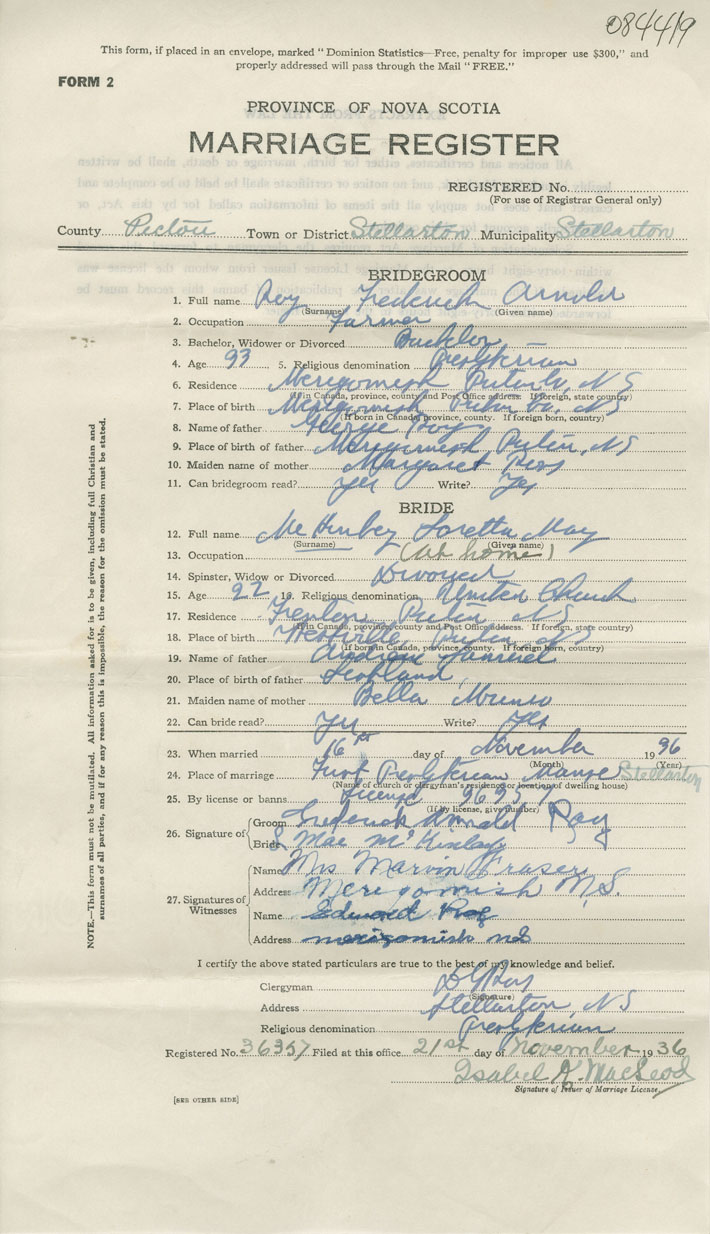 084419
This form, if placed in an envelope, marked "Dominion Statistics—Free, penalty for improper use $300," and
properly addressed will pass through the Mail "FREE."
FORM 2
PROVINCE OF NOVA SCOTIA
MARRIAGE REGISTER
REGISTERED No.
(For use of Registrar General only)
County Pictou Town or District Stellarton Municipality Stellarton
BRIDEGROOM
1. Full name Roy Frederick Arnold
(Surname) (Given name)
2. Occupation Farmer
3. Bachelor, Widower or Divorced Bachelor
4. Age 33 5. Religious denomination Presbyterian
6. Residence Merigomish Pictou Co, N S
(If in Canada, province, county and Post Office address. If foreign, state country)
7. Place of birth Merigomish Pictou Co, N S
(If born in Canada, province, county. If foreign born, country)
8. Name of father George Roy
9. Place of birth of father Merigomish Pictou, N S
10. Maiden name of mother Margaret Ross
11. Can bridegroom read? Yes Write? Yes
BRIDE
12. Full name McKinley Loretta May
(Surname) (Given name)
13. Occupation (At home)
14. Spinster, Widow or Divorced Divorced
15. Age 22 16. Religious denomination United Church
17. Residence Trenton Pictou N S
(If in Canada, province, county and Post Office address. If foreign, state country)
18. Place of birth Westville Pictou N S
(If born in Canada, province, county. If foreign born, country)
19. Name of father Andrew
20. Place of birth of father Scotland
21. Maiden name of mother Bella Munro
22. Can bride read? Yes Write? Yes
23. When married 16 day of November 1936
(Month) (Year)
24. Place of marriage First Presbyterian Manse Stellarton
(Name of church or clergyman's residence or location of dwelling house)
25. By license or banns License 36357
(If by license, give number)
26. Signature of
Groom Frederick Arnold Roy
Bride L Mae McKinlay
27. Signatures of Witnesses
Name Mrs Marvin Fraser
Address Merigomish N.S.
Name Edward Roy
Address merigomish ns
I certify the above stated particulars are true to the best of my knowledge and belief.
Clergyman
(Signature)
Address Stellarton, N S
Religious denomination Presbyterian
Registered No. 36357 Filed at this office 21st day of November 1936
Isabel K. MacLeod
Signature of Issuer of Marriage License.
[SEE OTHER SIDE]
NOTE.—This form must not be mutilated. All information asked for is to be given, including full Christian and
surnames of all parties, and if for any reason this is impossible, the reason for the omission must be stated.